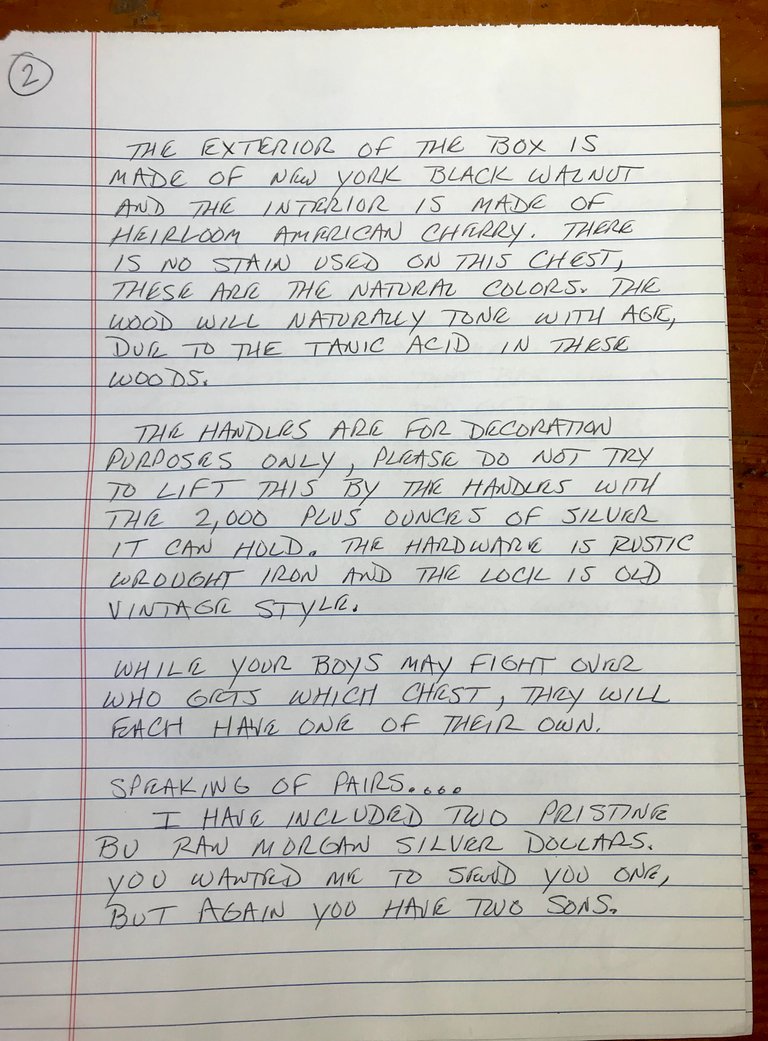 2
THE EXTERIOR OF THE BOX IS
MADE OF NEW YORK BLACK WALNUT
AND THE INTERIOR IS MADE OF
HEIRLOOM AMERICAN CHERRY. THERE
IS NO STAIN USED ON THIS CHEST,
THESE ARE THE NATURAL COLORS. THE
WOOD WILL NATURALLY TONE WITH AGE,
DUE TO THE TANIC ACID IN THESE
WOODS.
THE HANDLES ARE FOR DECORATION
PURPOSES ONLY, PLEASE DO NOT TRY
TO LIFT THIS BY THE HANDLES WITH
THE 2,000 PLUS OUNCES OF SILVER
IT CAN HOLD. THE HARDWARE IS RUSTIC
WROUGHT IRON AND THE LOCK IS OLD
VINTAGE STYLE.
WHILE YOUR BOYS MAY FIGHT OVER
WHO GETS WHICH CHEST, THEY WILL
EACH HAVE ONE OF THEIR OWN.
SPEAKING OF PAIRS....
I HAVE INCLUDED TWO PRISTINE
BU RAW MORGAN SILVER DOLLARS.
YOU WANTED ME TO SEND YOU ONE,
BUT AGAIN YOU HAVE TWO SONS.